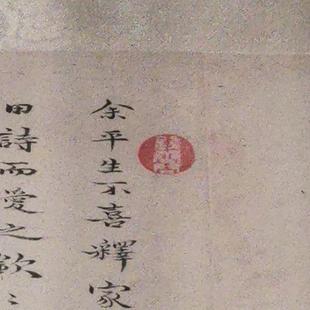 余平生不喜釋家
田詩而愛之欲